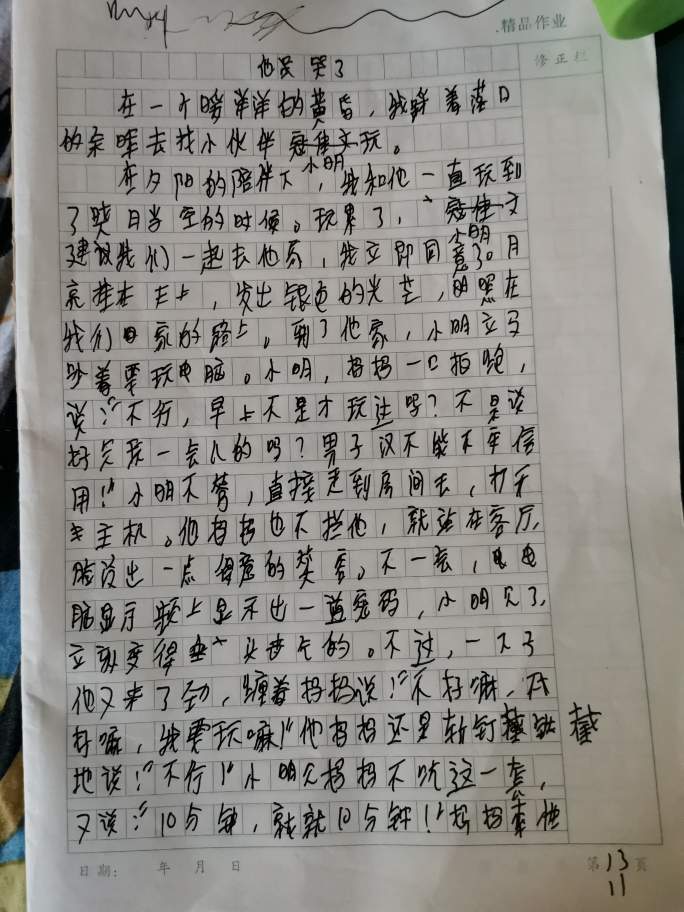 精品作业
修正栏
他又哭了
在一个暖洋洋的黄昏，我踩着落日
的余晖去找小伙伴玩。
在夕阳的陪伴下小明，我和他一直玩到
了皓月当空的时候。玩累了，小明
建议我们一起去他家，我立即同意了。月
亮挂在天上，发出银色的光芒，照在
我们回家的路上。到了他家，小明立马
吵着要玩电脑。小明，妈妈一口拒绝，
说：“不行，早上不是才玩过吗？不是说
好只玩一会儿的吗？男子汉不能不守信
用！”小明不管，直接走到房间去，打开
主机。他妈妈也不拦他，就站在客厅，
脸没出一点得意的笑容。不一会，电
脑显示频上显示出一道密码，小明见了，
立刻变得垂头丧气的。不过，一下子
他又来了劲，缠着妈妈说：“不好嘛，不
好嘛，我要玩嘛！”他妈妈还是斩钉截铁 截
地说：“不行！”小明见妈妈不吃这一套，
又说：“10分钟，就就10分钟！”妈妈索性
日期： 年 月 日
第13页
11